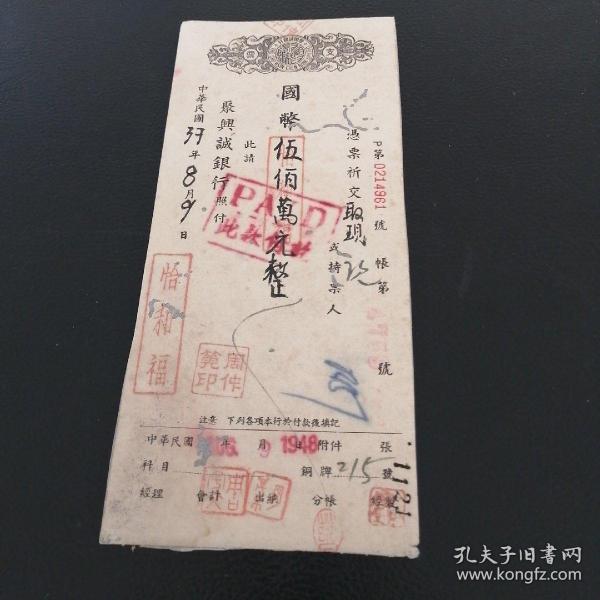 支票
P第0214961號
帳第 號
憑票祈交取現 或持票人
國幣伍佰萬元整
此請
聚興誠銀行 照付
中華民國37年8月9日
PAID
此款付訖
怡和福
周仲範印
注意 下列各項本行於付款後填記
中華民國 年 月 日 附件 張
9 1948
科目 銅牌215號
經理 會計 出納 分帳
1121
孔夫子旧书网
www.kongfz.com